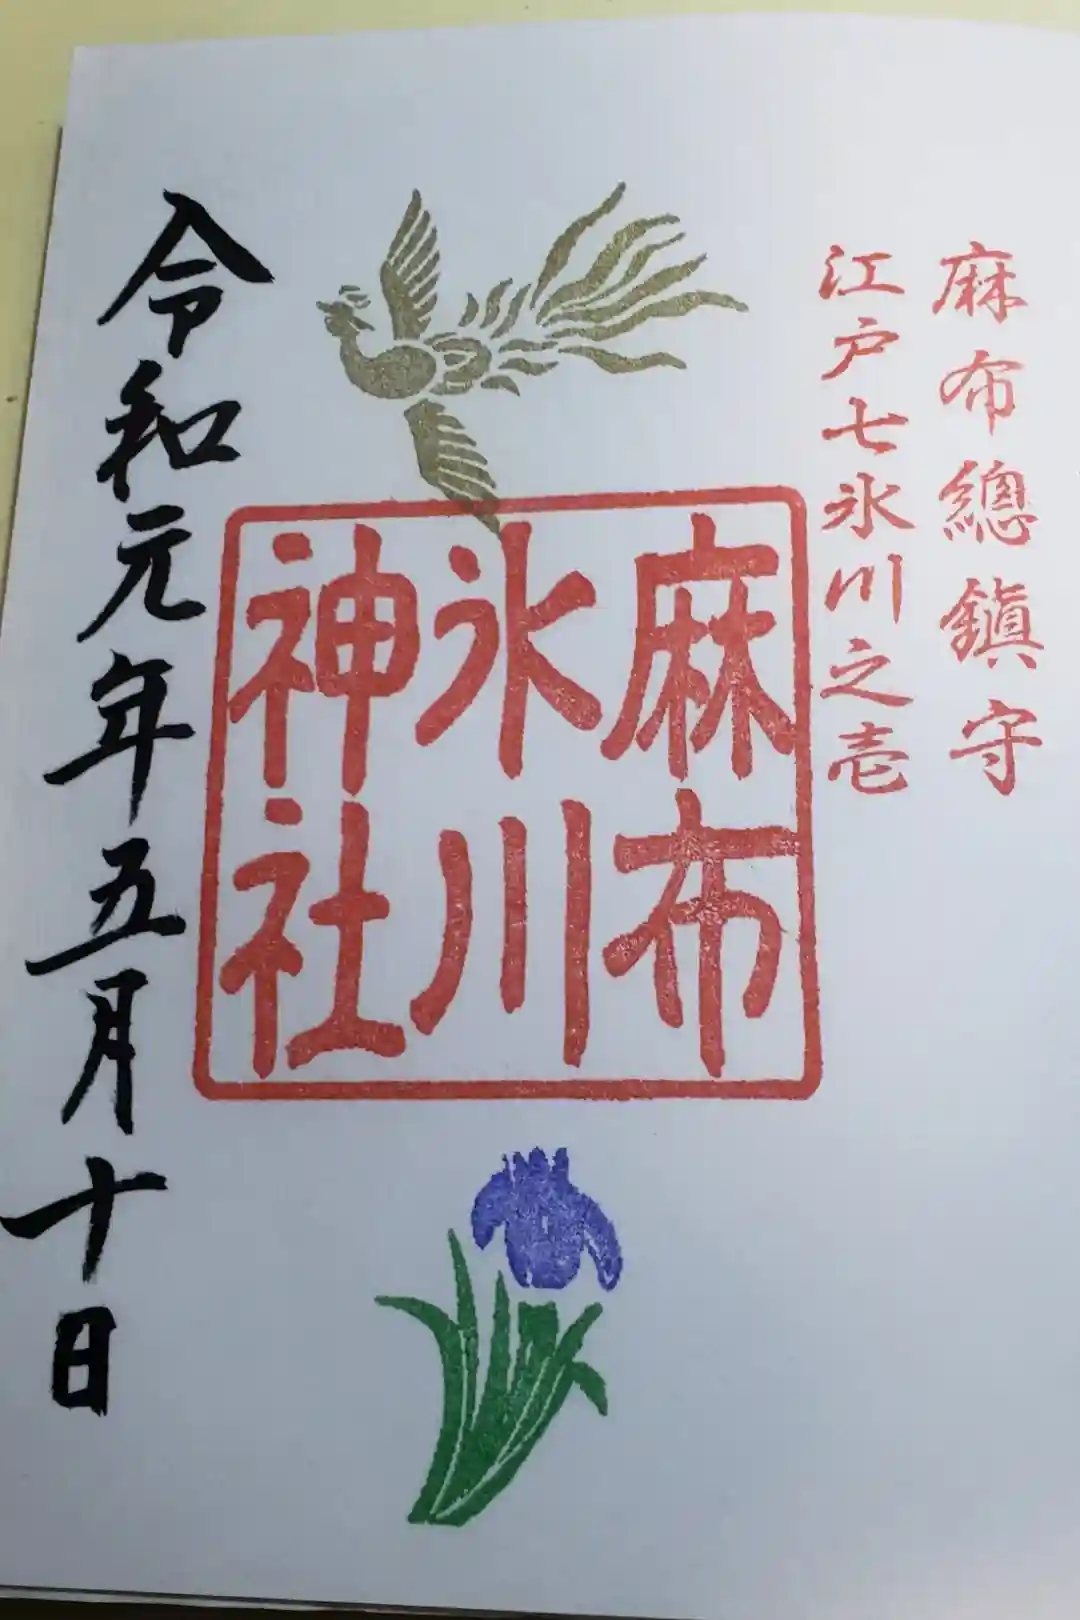 麻布總鎭守
江戸七氷川之壱
麻布
氷川
神社
令和元年五月十日